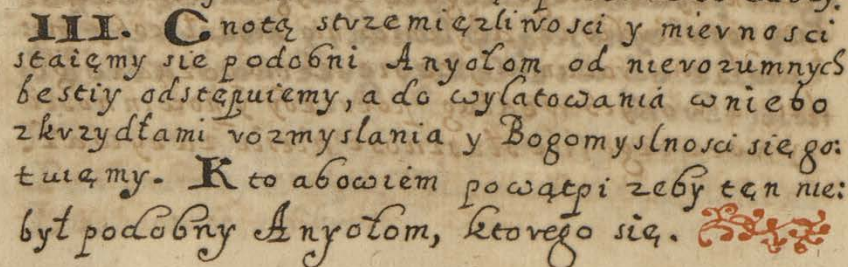 III. Cnotą strzemięzliwosci y miernosci
staięmy sie podobni Anyołom od nierozumnych
bestiy odstępuiemy, a do wylatowania w niebo
z krzydłami rozmyslania y Bogomyslnosci się go:
tuięmy. Kto abowiem powątpi zeby tęn nie:
był podobny Anyołom, ktorego się.